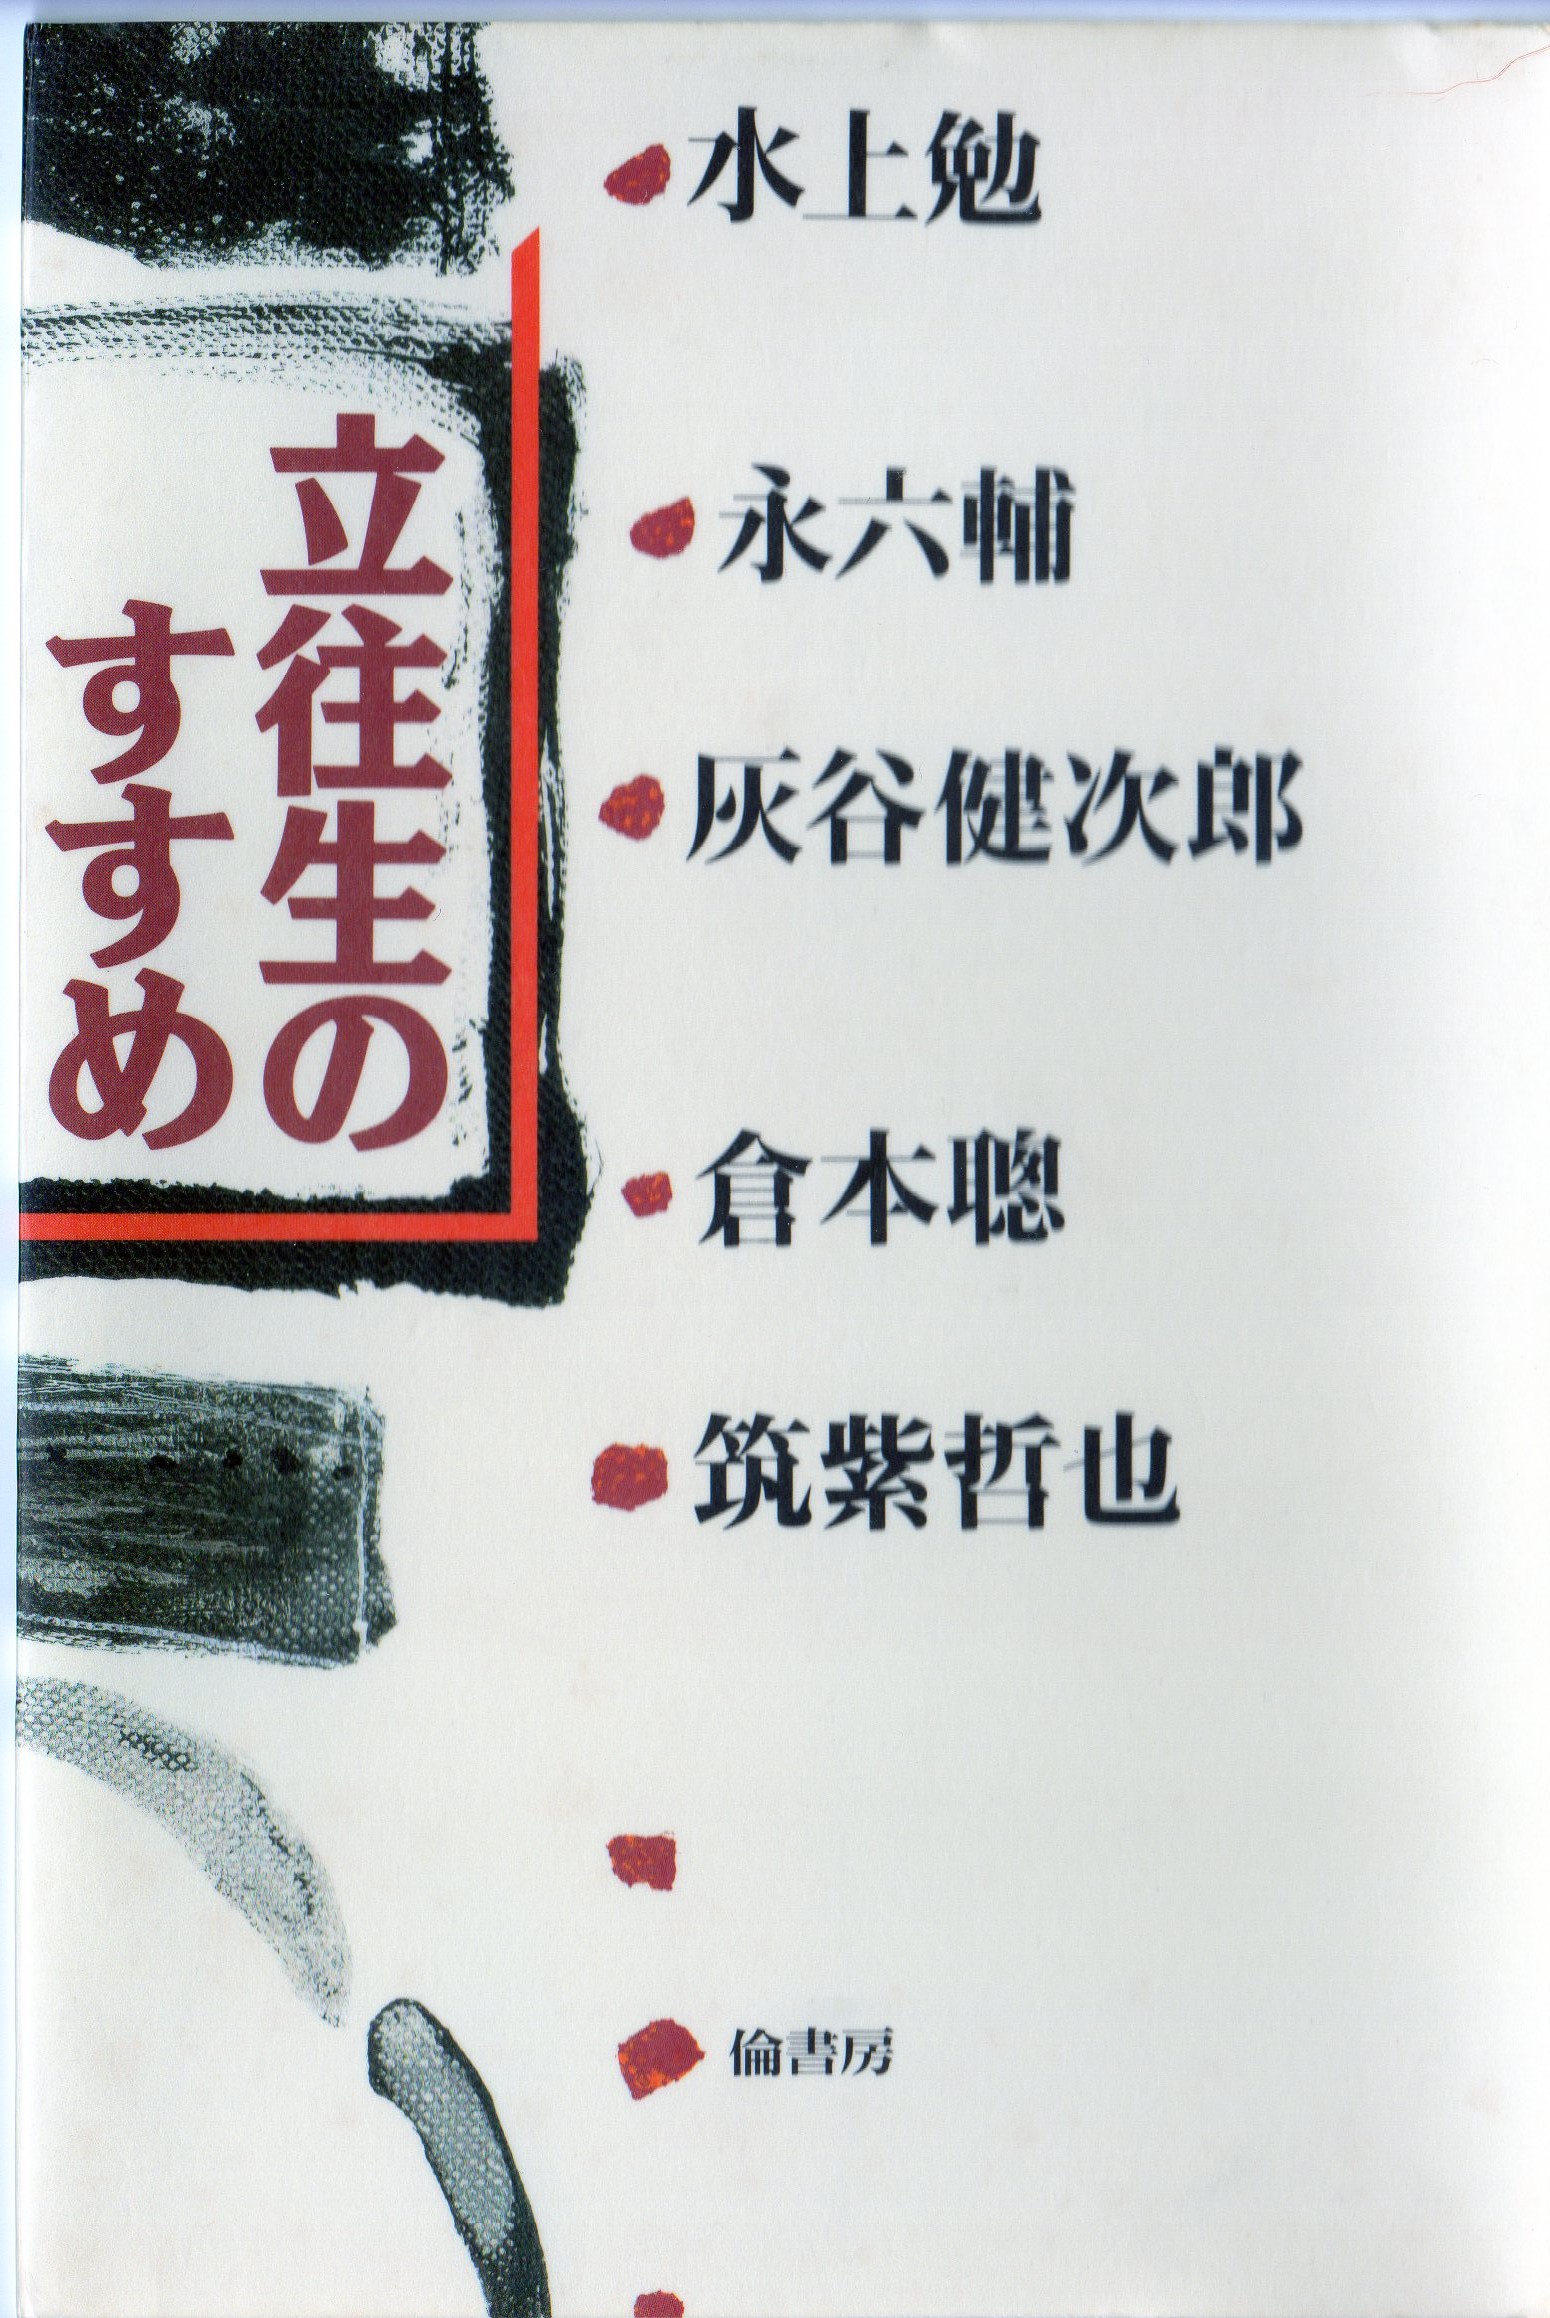 水上勉
永六輔
灰谷健次郎
倉本聰
筑紫哲也
立往生の
すすめ
倫書房